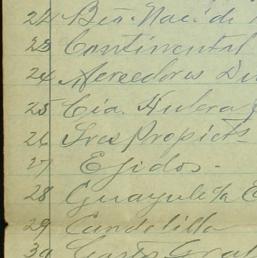 22 Bco. Nac. de
23 Continental
24 Acreedores Di
25 Cía. Hulera
26 Sres Propiets
27 Ejidos.-
28 Guayule c/a C
29 Candelilla
30 Gastos Gral